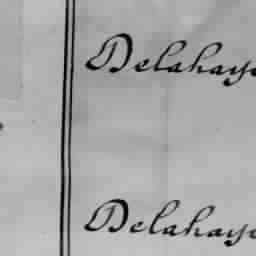 Delahaye
Delahaye